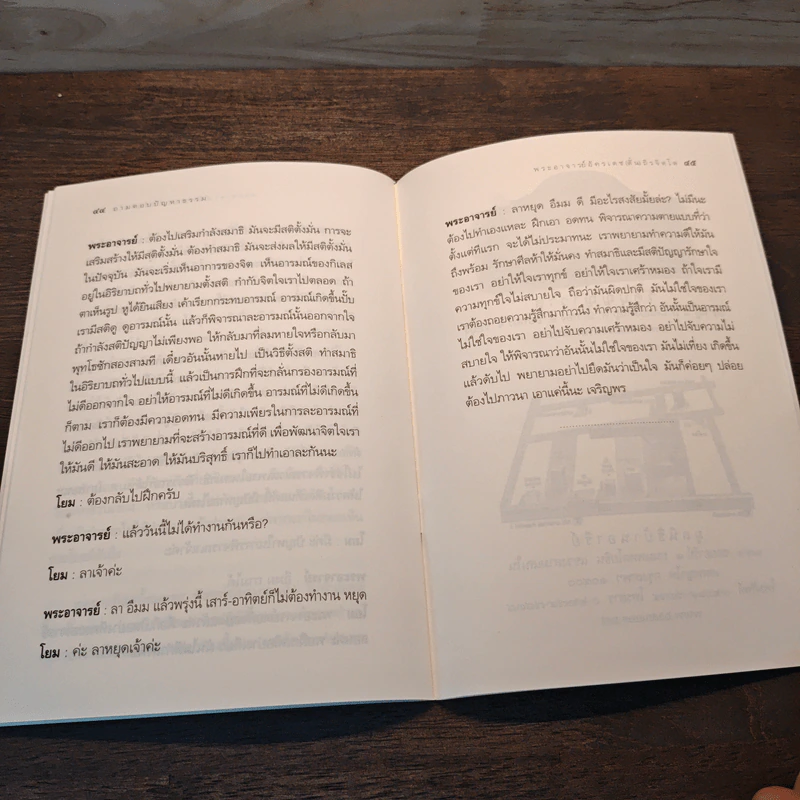 ๔๔ ถามตอบปัญหาธรรม
พระอาจารย์ : ต้องไปเสริมกำลังสมาธิ มันจะมีสติตั้งมั่น การจะ
เสริมสร้างให้มีสติตั้งมั่น ต้องทำสมาธิ มันจะส่งผลให้มีสติตั้งมั่น
ในปัจจุบัน มันจะเริ่มเห็นอาการของจิต เห็นอารมณ์ของกิเลส
อยู่ในอิริยาบถทั่วไปพยายามตั้งสติ กำกับจิตใจเราไปตลอด ถ้า
ตาเห็นรูป หูได้ยินเสียง เค้าเรียกกระทบอารมณ์ อารมณ์เกิดขึ้นปั๊บ
เรามีสติดู ดูอารมณ์นั้น แล้วก็พิจารณาละอารมณ์นั้นออกจากใจ
ถ้ากำลังสติปัญญาไม่เพียงพอ ให้กลับมาที่ลมหายใจหรือกลับมา
พุทโธซักสองสามที เดี๋ยวอันนั้นหายไป เป็นวิธีตั้งสติ ทำสมาธิ
ในอิริยาบถทั่วไปแบบนี้ แล้วเป็นการฝึกที่จะกลั่นกรองอารมณ์ที่
ไม่ดีออกจากใจ อย่าให้อารมณ์ที่ไม่ดีเกิดขึ้น อารมณ์ที่ไม่ดีเกิดขึ้น
ก็ตาม เราก็ต้องมีความอดทน มีความเพียรในการละอารมณ์ที่
ไม่ดีออกไป เราพยายามที่จะสร้างอารมณ์ที่ดี เพื่อพัฒนาจิตใจเรา
ให้มันดี ให้มันสะอาด ให้มันบริสุทธิ์ เราก็ไปทำเอาละกันนะ
โยม : ต้องกลับไปฝึกครับ
พระอาจารย์ : แล้ววันนี้ไม่ได้ทำงานกันหรือ?
โยม : ลาเจ้าค่ะ
พระอาจารย์ : ลา อืมม แล้วพรุ่งนี้ เสาร์-อาทิตย์ก็ไม่ต้องทำงาน หยุด
โยม : ค่ะ ลาหยุดเจ้าค่ะ
พระอาจารย์อัครเดช (ตั๋น) ถิรจิตโต ๔๕
พระอาจารย์ : ลาหยุด อืมม ดี มีอะไรสงสัยมั้ยล่ะ? ไม่มีนะ
ต้องไปทำเองแหละ ฝึกเอา อดทน พิจารณาความตายแบบที่ว่า
ตั้งแต่ทีแรก จะได้ไม่ประมาทนะ เราพยายามทำความดีให้มัน
ถึงพร้อม รักษาศีลห้าให้มั่นคง ทำสมาธิและมีสติปัญญารักษาใจ
ของเรา อย่าให้ใจเราทุกข์ อย่าให้ใจเราเศร้าหมอง ถ้าใจเรามี
ความทุกข์ใจไม่สบายใจ ถือว่ามันผิดปกติ มันไม่ใช่ใจของเรา
เราต้องถอยความรู้สึกมาก้าวนึง ทำความรู้สึกว่า อันนั้นเป็นอารมณ์
ไม่ใช่ใจของเรา อย่าไปจับความเศร้าหมอง อย่าไปจับความไม่
สบายใจ ให้พิจารณาว่าอันนั้นไม่ใช่ใจของเรา มันไม่เที่ยง เกิดขึ้น
แล้วดับไป พยายามอย่าไปยึดมันว่าเป็นใจ มันก็ค่อยๆ ปล่อย
ต้องไปภาวนา เอาแค่นี้นะ เจริญพร